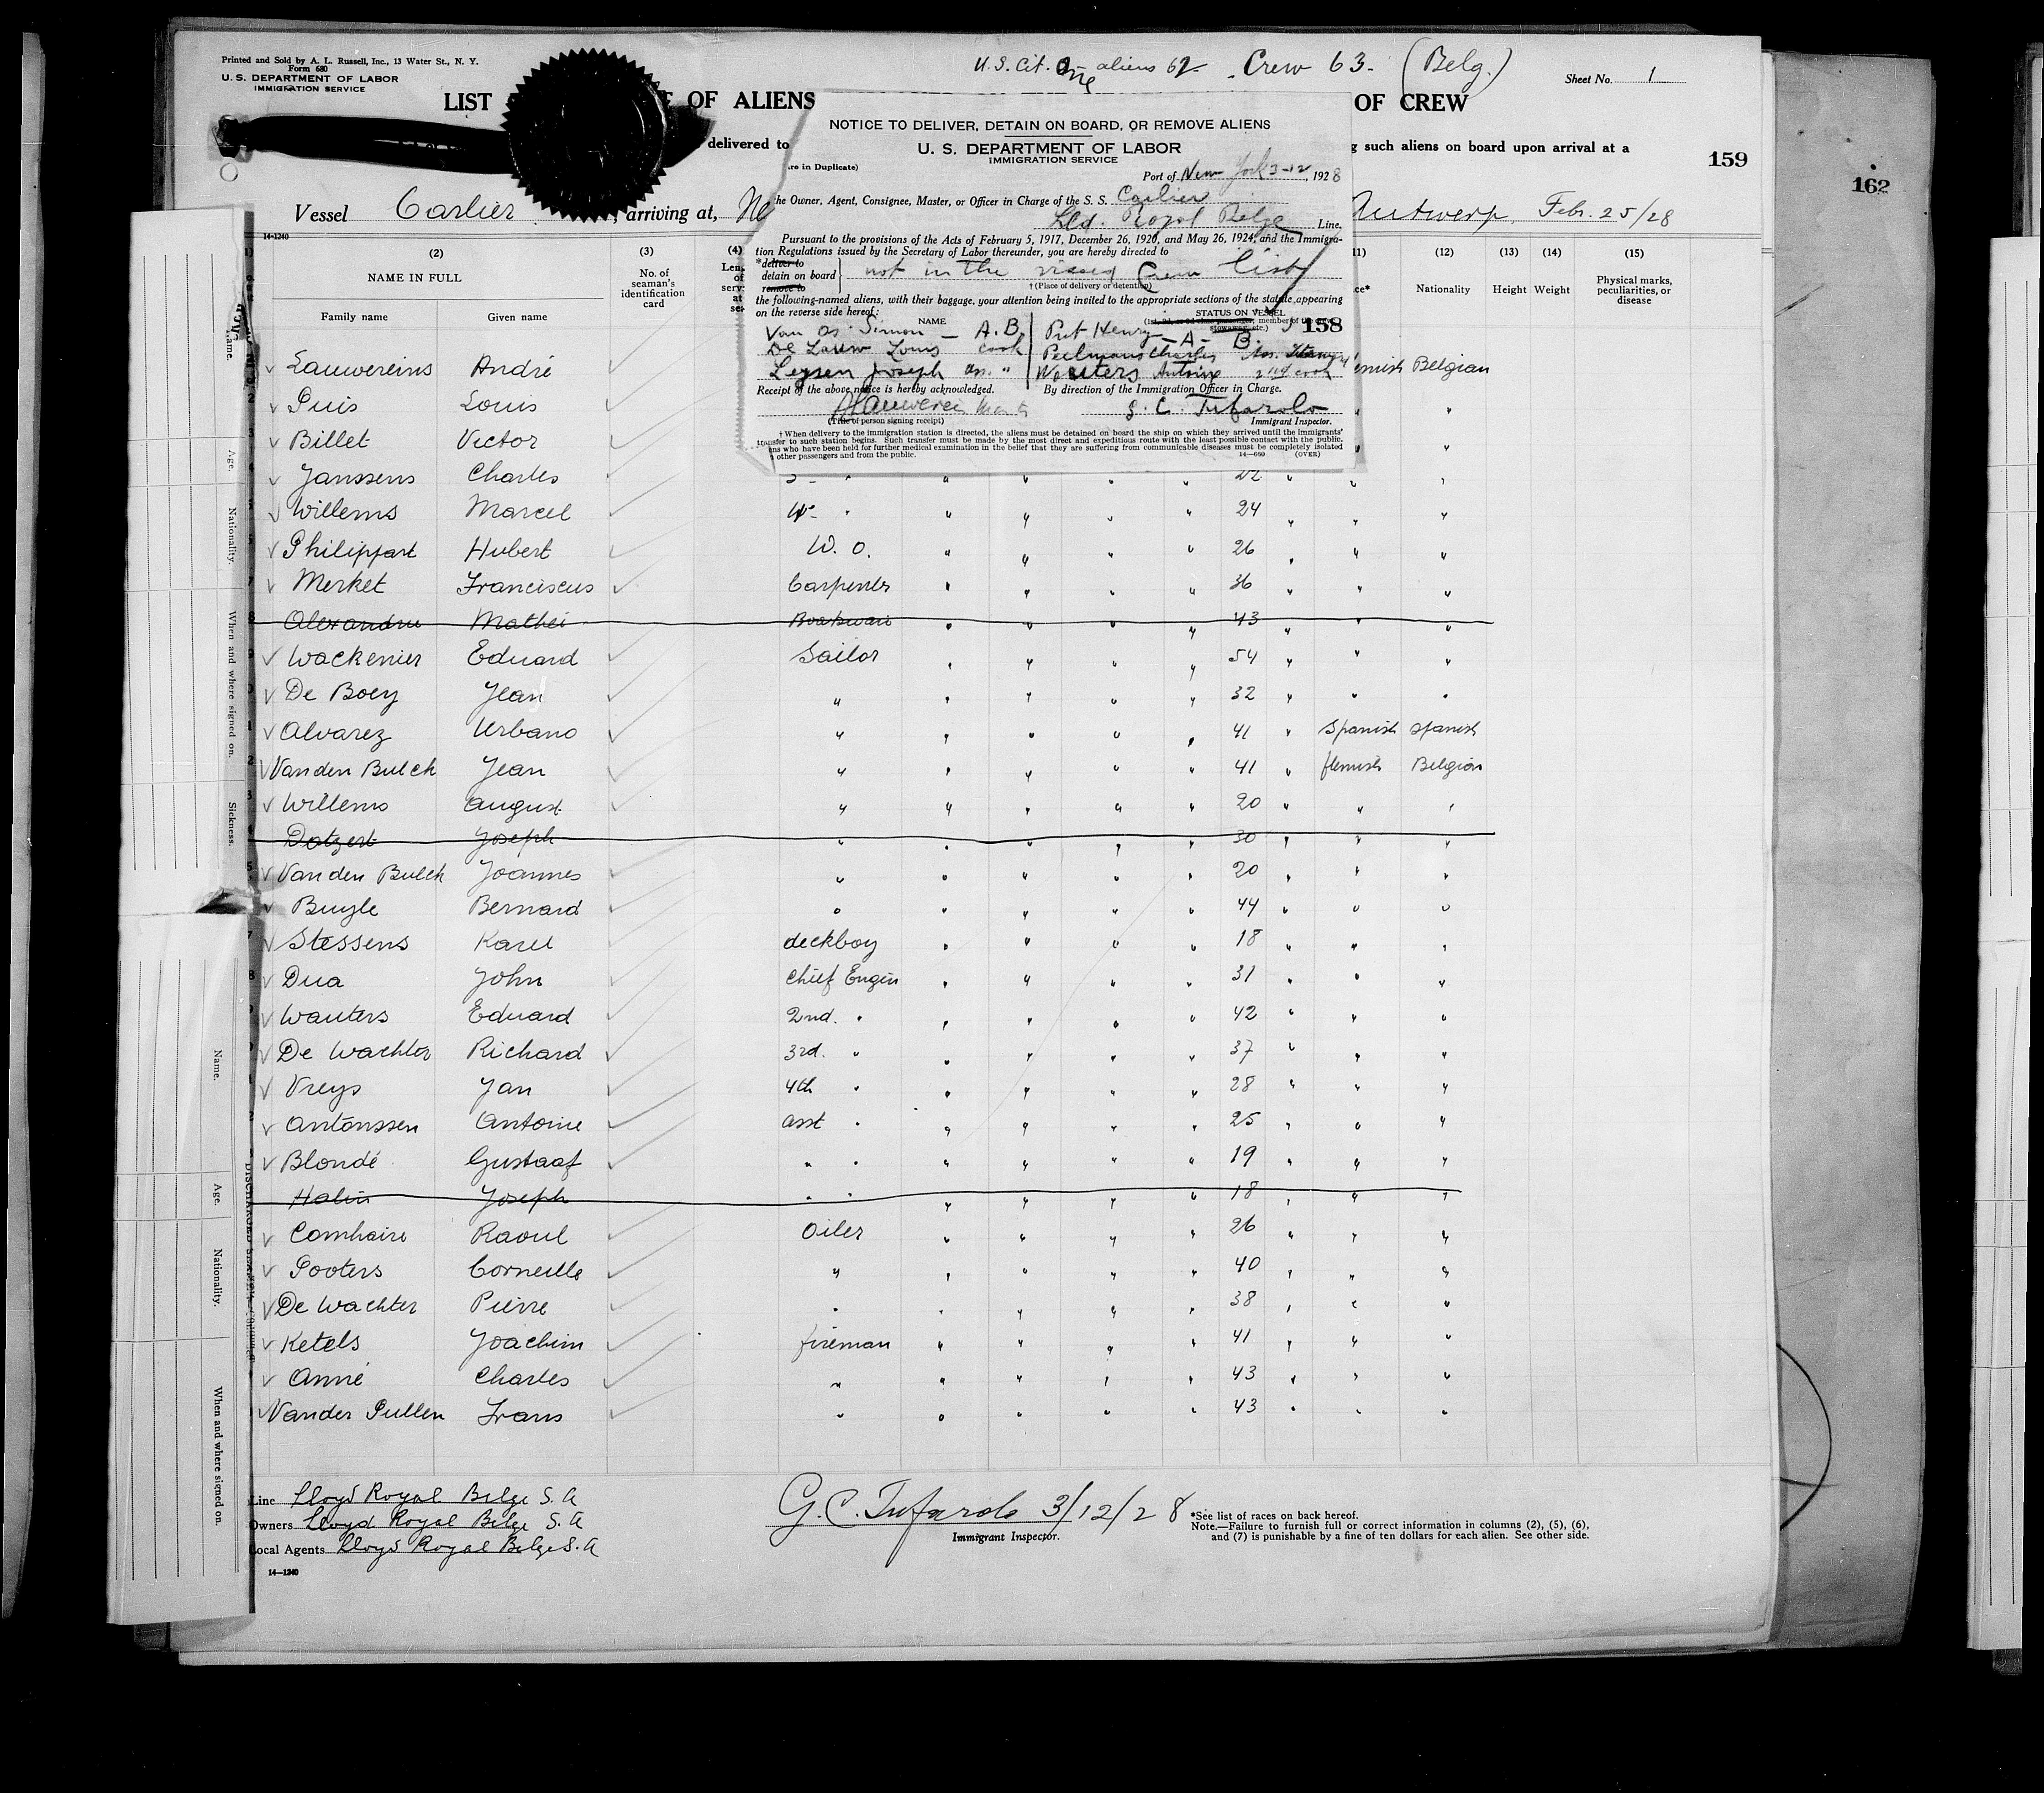 U.S. Cit. One aliens 62 Crew 63. (Belg.)
Printed and Sold by A. L. Russell, Inc., 13 Water St., N. Y.
Form 680
U. S. DEPARTMENT OF LABOR
IMMIGRATION SERVICE
Sheet No. 1
LIST OF ALIENS OF CREW
delivered to such aliens on board upon arrival at a
159
162
Vessel Carlier arriving at, Ne Antwerp, Febr. 25/28
14-1240
NOTICE TO DELIVER, DETAIN ON BOARD, OR REMOVE ALIENS
U. S. DEPARTMENT OF LABOR
IMMIGRATION SERVICE
are in Duplicate)
Port of New York 3-12, 1928
he Owner, Agent, Consignee, Master, or Officer in Charge of the S. S. Carlier
Lld. Royal Belge Line.
Pursuant to the provisions of the Acts of February 5, 1917, December 26, 1920, and May 26, 1924, and the Immigra-
tion Regulations issued by the Secretary of Labor thereunder, you are hereby directed to
*deliver to
detain on board not in the vissed Crew list
remove to
†(Place of delivery or detention)
the following-named aliens, with their baggage, your attention being invited to the appropriate sections of the statute, appearing
on the reverse side hereof:
NAME STATUS ON VESSEL
158
Van Os Simon - A. B. Put Henry - A - B.
De Lauw Louis cook Peelmans Charles Ass.
Leysen Joseph ass. " Wouters Antoine 2nd cook
Receipt of the above notice is hereby acknowledged. By direction of the Immigration Officer in Charge.
G. C. Tufarolo
(Title of person signing receipt) Immigrant Inspector.
† When delivery to the immigration station is directed, the aliens must be detained on board the ship on which they arrived until the immigrants'
transfer to such station begins. Such transfer must be made by the most direct and expeditious route with the least possible contact with the public.
ens who have been held for further medical examination in the belief that they are suffering from communicable diseases must be completely isolated
other passengers and from the public. 14-660 (OVER)
(2) (3) (4) (12) (13) (14) (15)
NAME IN FULL No. of seaman's identification card Nationality Height Weight Physical marks, peculiarities, or disease
Family name Given name
Lauwereins André Belgian
Puis Louis "
Billet Victor "
Janssens Charles 3 - " " " " " 22 " " "
Willems Marcel 4 - " " " " " 24 " " "
Philippart Hubert W. O. " " " " 26 " " "
Merket Franciscus Carpenter " " " " 36 " " "
Alexandru Mathei Boatswain " " " " 43 " " "
Wackenier Eduard Sailor " " " " 54 " " "
De Boey Jean " " " " " 32 " " "
Alvarez Urbano " " " " " 41 " Spanish Spanish
Vanden Bulck Jean " " " " " 41 " flemish Belgian
Willems August " " " " " 20 " " "
Datzert Joseph " " " " " 30 " " "
Van den Bulck Joannes " " " " " 20 " " "
Buyle Bernard " " " " " 44 " " "
Stessens Karel deckboy " " " " 18 " " "
Dua John Chief Engin " " " " 31 " " "
Wauters Eduard 2nd. " " " " " 42 " " "
De Wachter Richard 3rd. " " " " " 37 " " "
Vreys Jan 4th " " " " " 28 " " "
Antonssen Antoine asst " " " " " 25 " " "
Blondé Gustaaf " " " " " " 19 " " "
Halin Joseph " " " " " " 18 " " "
Comhaire Raoul Oiler " " " " 26 " " "
Pooters Corneille " " " " " 40 " " "
De Wachter Pierre " " " " " 38 " " "
Ketels Joachim fireman " " " " 41 " " "
Anné Charles " " " " " 43 " " "
Vander Putten Frans " " " " " 43 " " "
Line Lloyd Royal Belge S. A
Owners Lloyd Royal Belge S. A
Local Agents Lloyd Royal Belge S. A
14-1240
G. C. Tufarolo 3/12/28
Immigrant Inspector.
*See list of races on back hereof.
Note.—Failure to furnish full or correct information in columns (2), (5), (6),
and (7) is punishable by a fine of ten dollars for each alien. See other side.
Name.
Age.
Nationality.
When and where signed on.
Sickness.
Name.
Age.
Nationality.
When and where signed on.